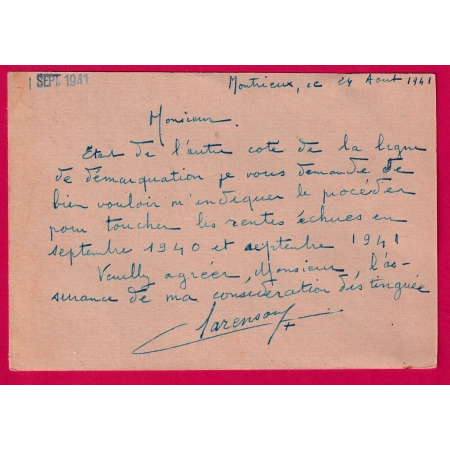 1 SEPT. 1941
Montrieux, le 24 Aout 1941
Monsieur.
Etant de l'autre cote de la ligne
de démarquation je vous demande de
bien vouloir m'indiquer le procéder
pour toucher les rentes échues en
septembre 1940 et septembre 1941
Veuillez agréer, Monsieur, l'as-
surance de ma consideration distinguée